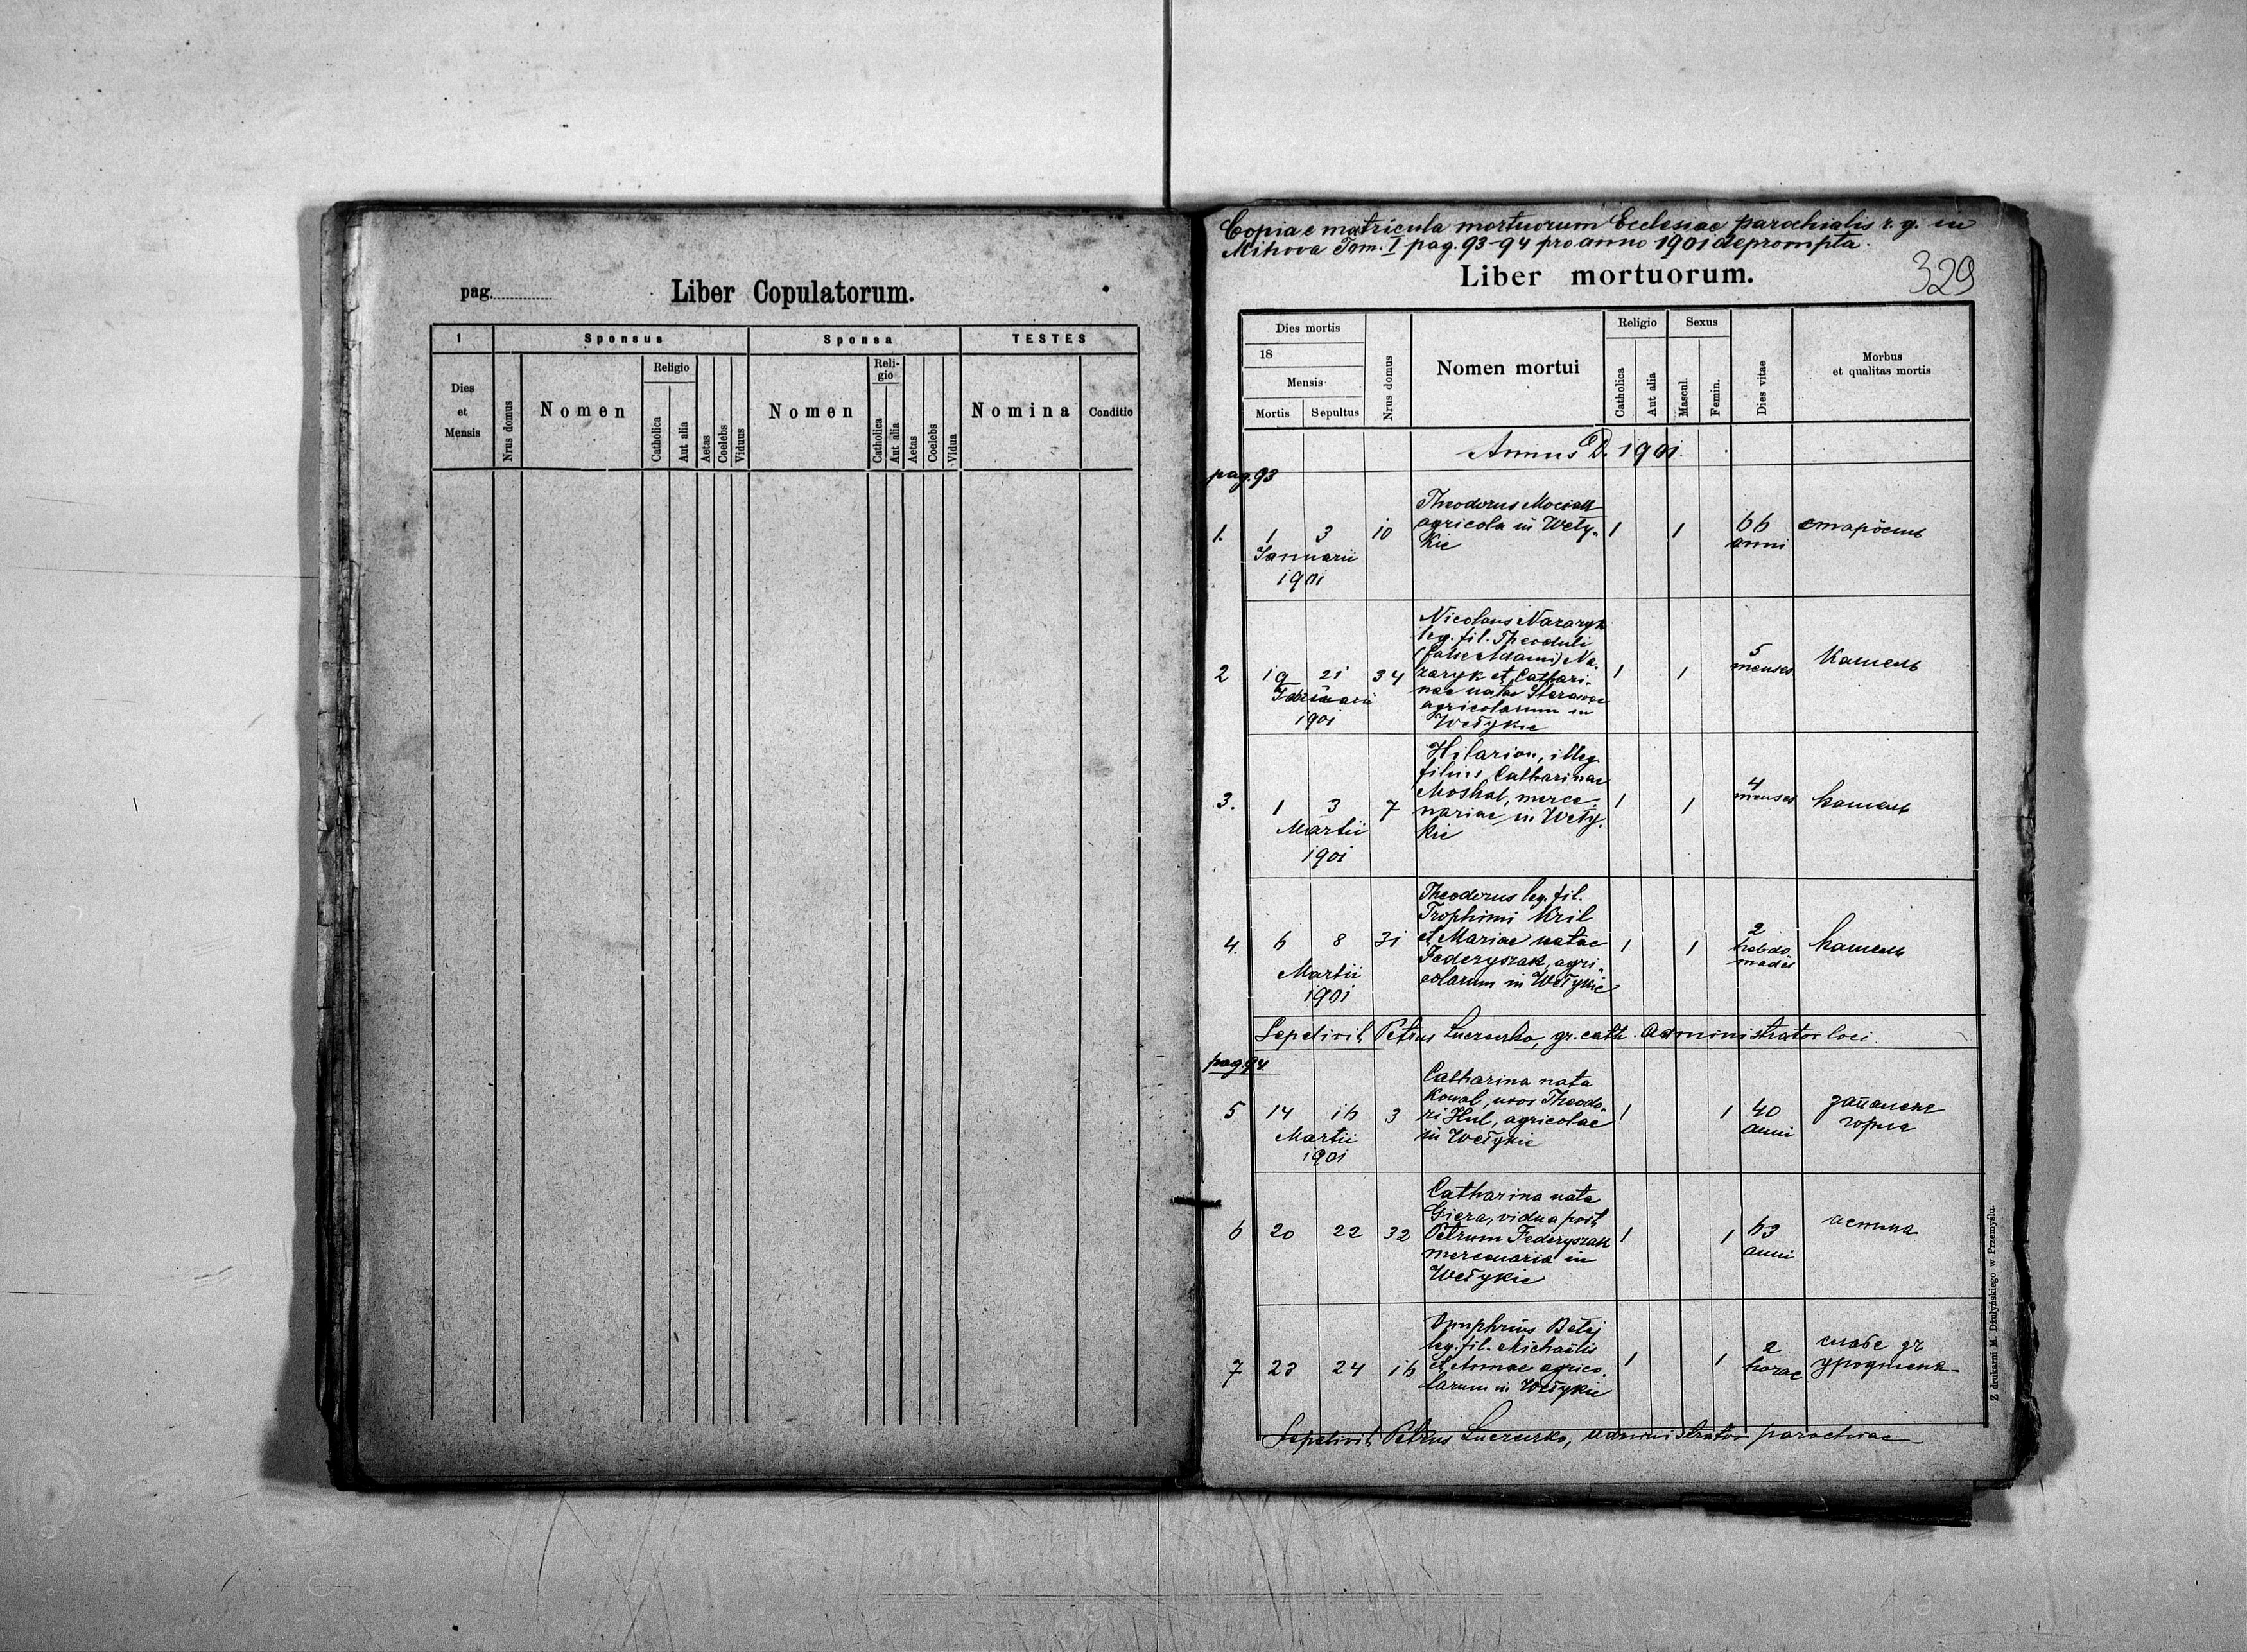 pag.
Liber Copulatorum.
1
Sponsus
Sponsa
TESTES
Dies
et
Mensis
Nrus domus
Nomen
Religio
Catholica
Aut alia
Aetas
Coelebs
Viduus
Nomen
Reli-
gio
Catholica
Aut alia
Aetas
Coelebs
Vidua
Nomina
Conditio
Copia e matricula mortuorum Ecclesiae parochialis r. g. in
Mihova Tom. I pag. 93-94 pro anno 1901 deprompta.
Liber mortuorum.
329
Dies mortis
18
Mensis
Mortis
Sepultus
Nrus domus
Nomen mortui
Religio
Catholica
Aut alia
Sexus
Mascul.
Femin.
Dies vitae
Morbus
et qualitas mortis
Annus D. 1901.
pag. 93
1. 1 3 10 1 1
Januarii
1901
Theodorus Mociak
agricola in Wety-
kie
66
anni
старôсть
2 19 21 34 1 1
Februarii
1901
Nicolaus Nazaryk
leg. fil. Theoduli
(false Adami) Na-
zaryk et Cathari-
nae natae
agricolarum in
Wełykie
5
menses
Кашель
3. 1 3 7 1 1
Martii
1901
Hilarion, illeg
filius Catharinae
Moskal, merce-
nariae in Wety-
kie
4
menses
кашель
4. 6 8 31 1 1
Martii
1901
Theodorus leg. fil.
Trophimi Kril
et Mariae natae
Federyszak, agri-
colarum in Wełykie
2
hebdo
mades
кашель
Sepelivit Petrus gr. cath. administrator loci.
pag. 94
5 14 16 3 1 1
Martii
1901
Catharina nata
Kowal, uxor Theodo-
ri Hul, agricolae
in Wełykie
40
anni
запаленє
горла
6 20 22 32 1 1
Catharina nata
Giera, vidua post
Petrum Federyszak
mercenaria in
Wełykie
63
anni
астма
7 23 24 16 1 1
Onuphrius Betej
leg. fil. Michaëlis
et Annae agrico-
larum in Wełykie
2
horae
слабе
Sepelivit Petrus administrator parochiae
Z drukarni M. Dżułyńskiego w Przemyślu.